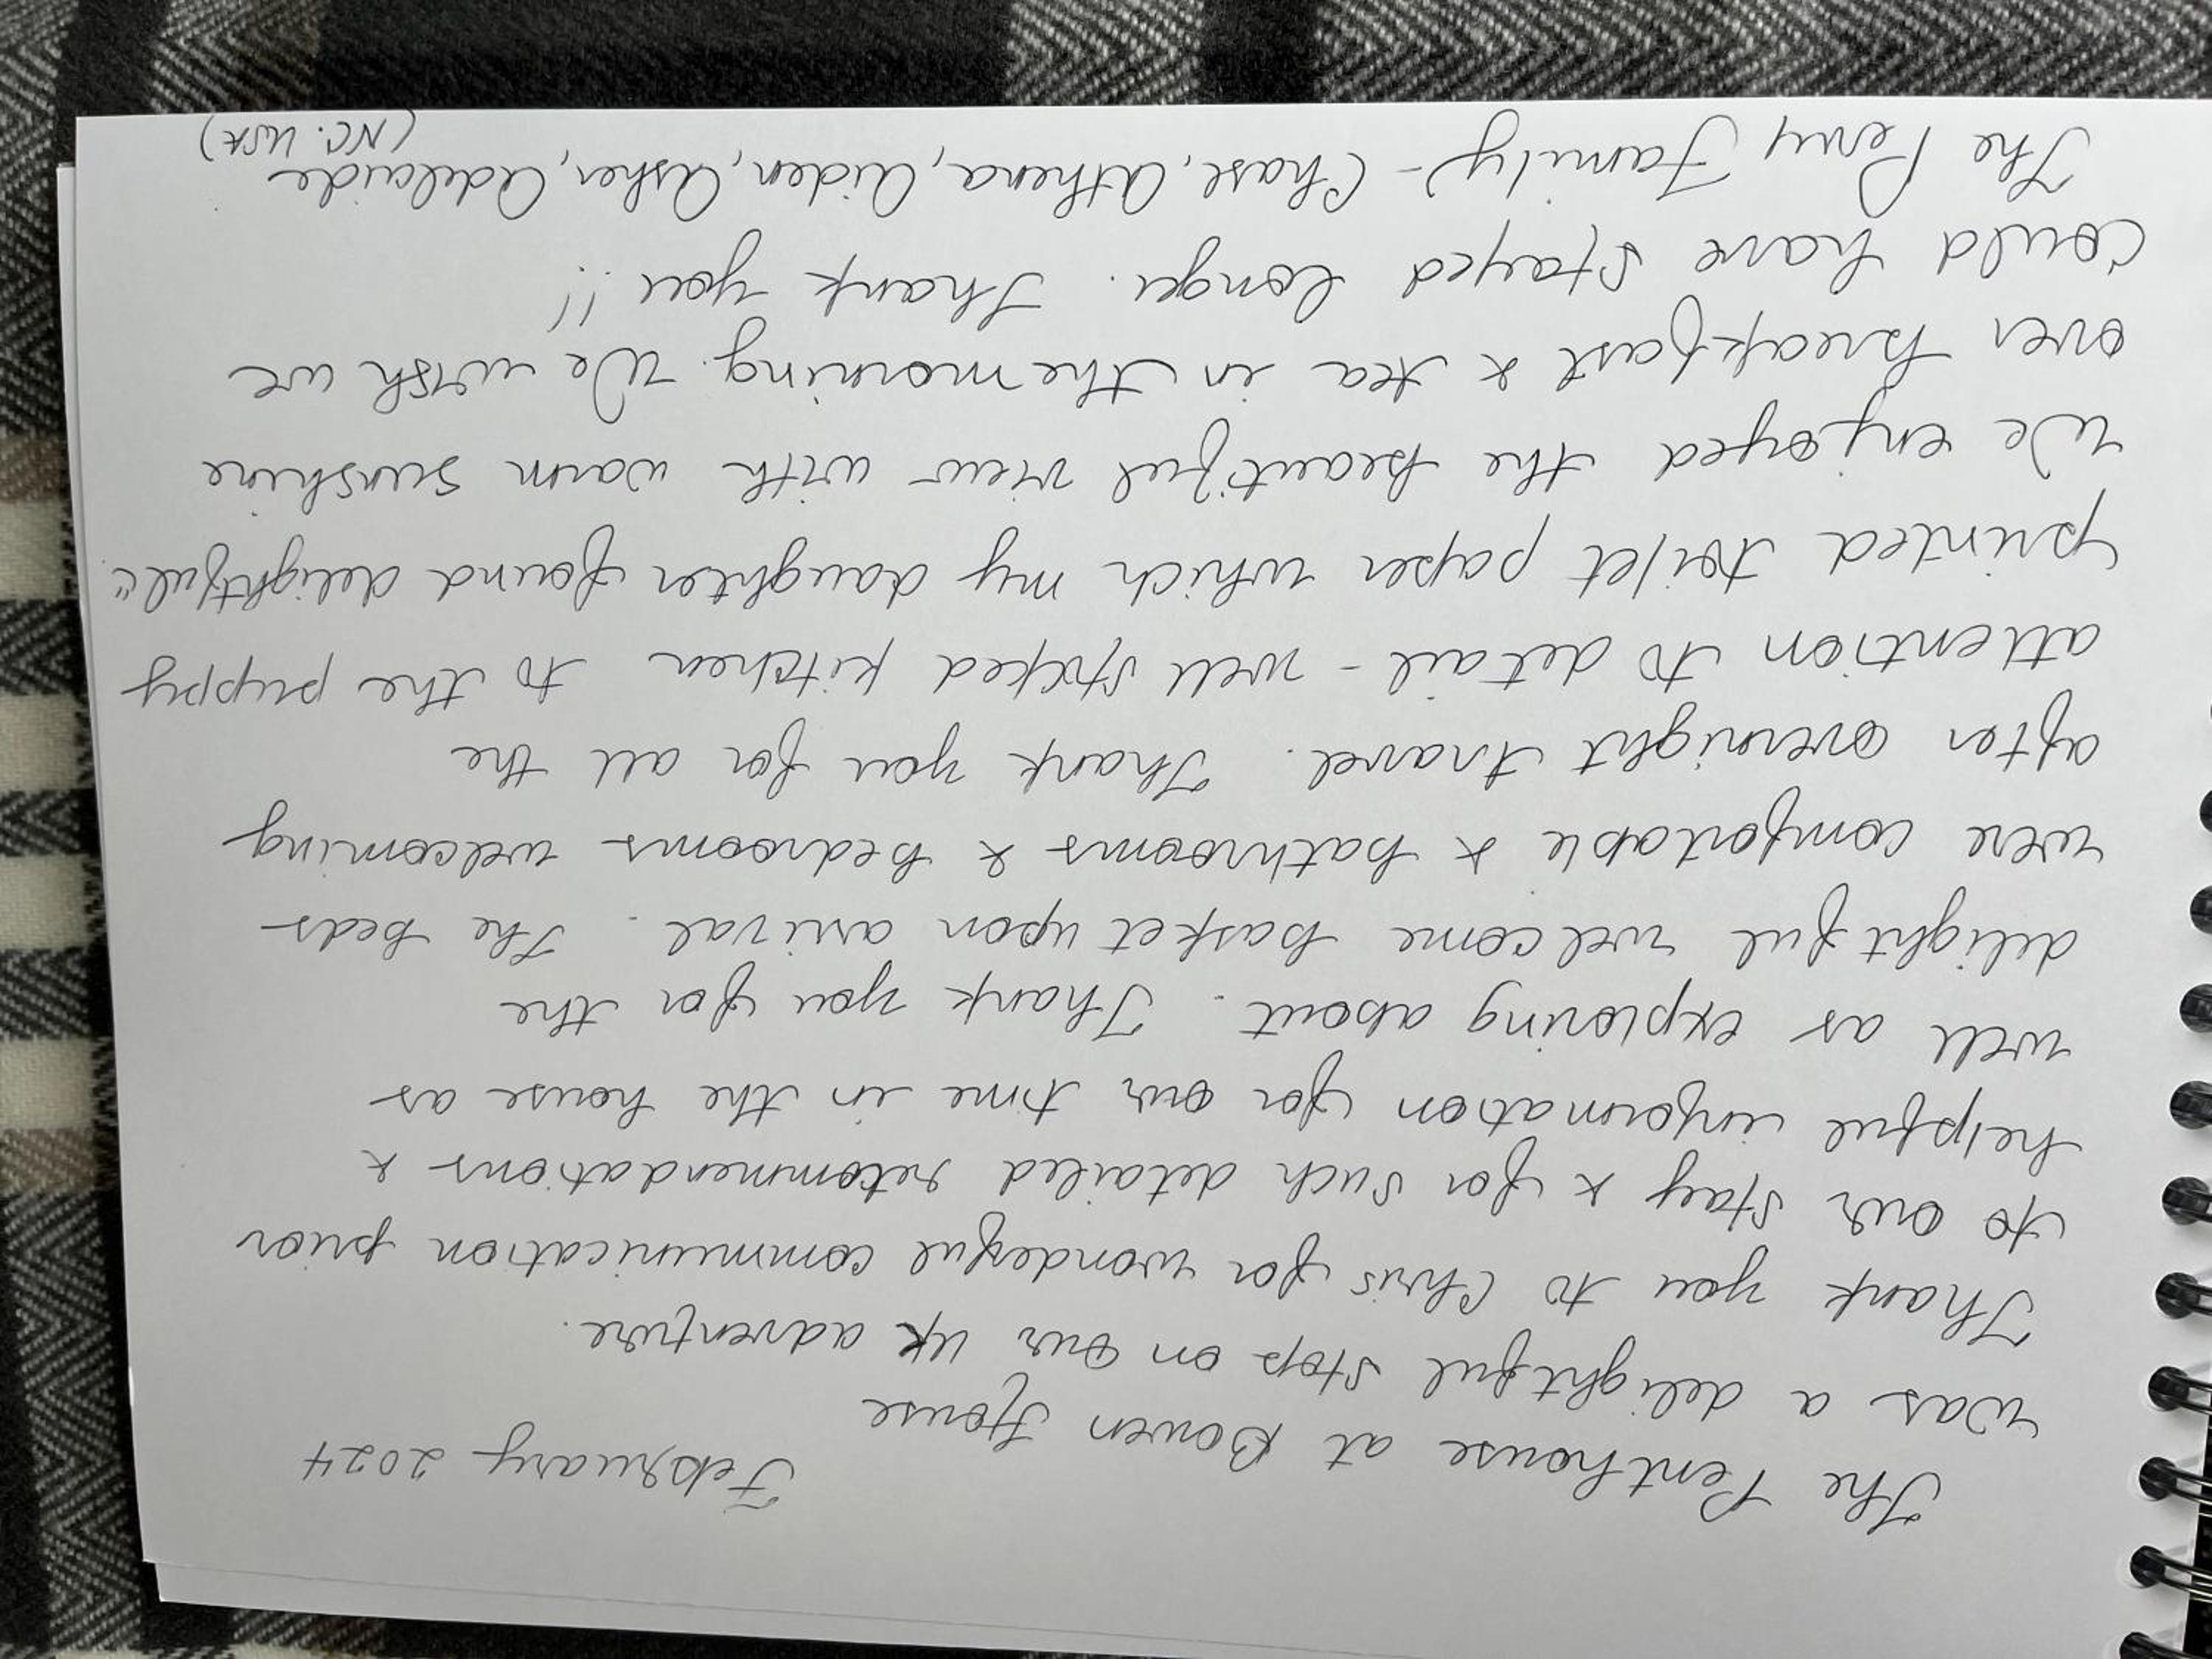 February 2024
The Penthouse at Bowen House
was a delightful stop on our UK adventure.
Thank you to Chris for wonderful communication prior
to our stay & for such detailed recommendations &
helpful information for our time in the house as
well as exploring about. Thank you for the
delightful welcome basket upon arrival. The beds
were comfortable & bathrooms & bedrooms welcoming
after overnight travel. Thank you for all the
attention to detail - well stocked kitchen to the puppy
printed toilet paper which my daughter found "delightful".
We enjoyed the beautiful view with warm sunshine
over breakfast & tea in the morning. We wish we
could have stayed longer. Thank you!!
The Perry Family - Chase, Athena, Aiden, Asher, Adelaide
(NC. USA)